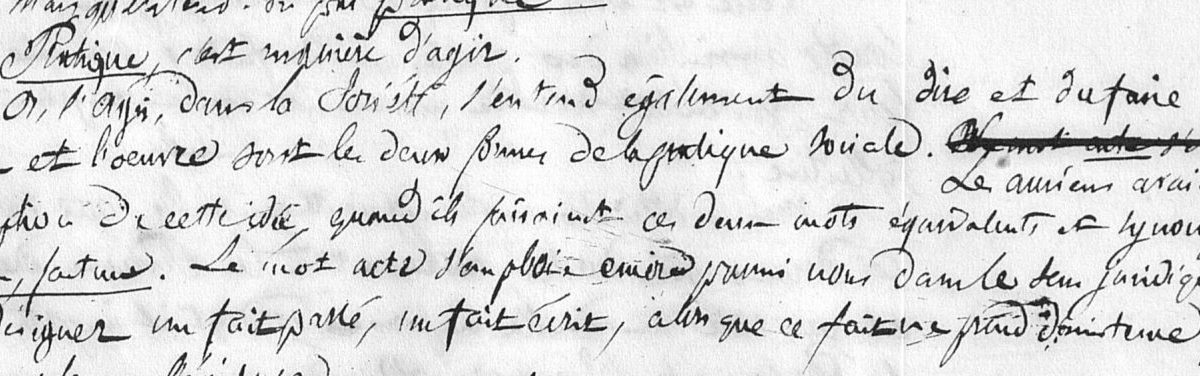 pratique
Pratique, c'est manière d'agir.
Or, l'agir, dans la Société, s'entend également du dire et du faire
et l'oeuvre sont les deux formes de la pratique sociale.
Les anciens avai
de cette idée, quand ils faisaient ces deux mots équivalents et synon
Le mot acte s'emploie encore parmi nous dans le sens juridiq
désigner un fait passé, un fait écrit, alors que ce fait ne